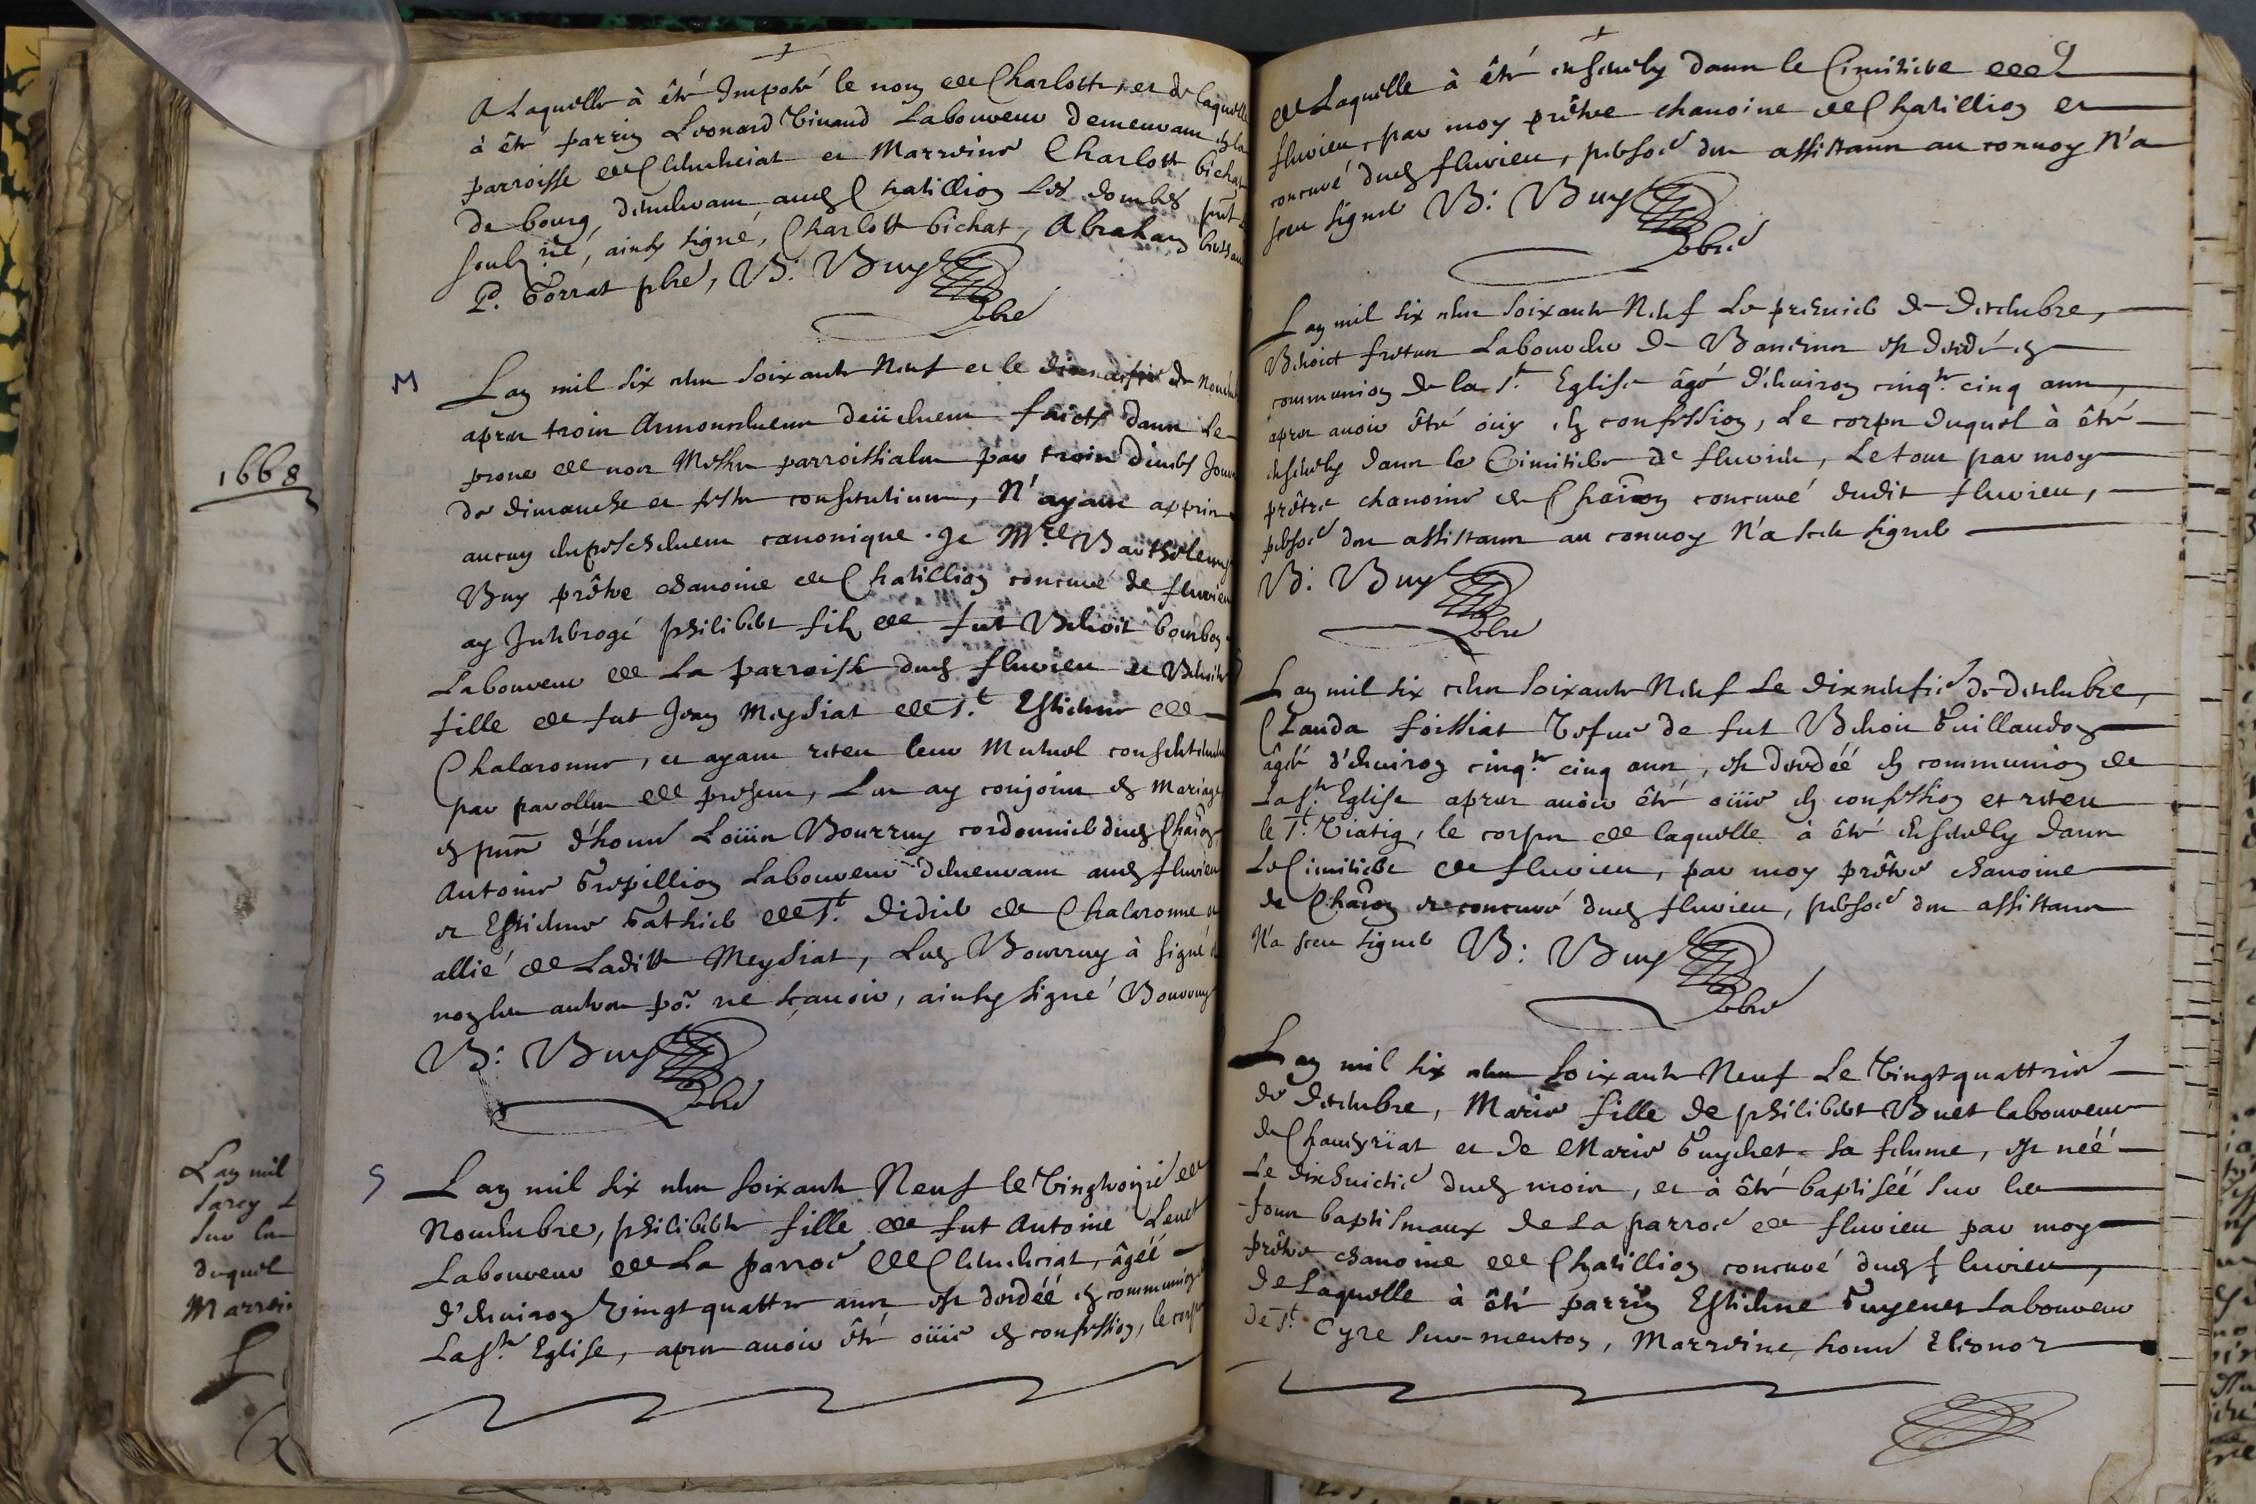 1668
A Laquelle à êté Imposé le nom de Charlotte, et de laquelle
à êté parrin Leonard Vivand Laboureur demeurant en la
parroisse de Clemenciat et Marreine Charlotte bichat
de bourg, demeurant aud Chatillion Les dombes
soubsné, ainsy signé, Charlotte bichat, Abraham
P. Gorrat pbre, B: Buy
pbre
M
Lan mil six cens soixante Neuf et le dixneufie de Novembre
apres trois Annoncemens deüement faicts dans le
prone de nos Messes parroissiales par trois divers Jours
de dimanche et feste consecutives, N'ayant appris
aucun empeschement canonique. Je Mre Barthelemy
Buy prêtre chanoine de Chatillion concuré de fluvieu
ay Interrogé philibert fils de fut Benoit bourbon
Laboureur de La parroisse dud fluvieu et Benoite
fille de fut Jean Meysiat de St. Estienne de
Chalaronne, et ayant receu leur Mutuel consentement
par parolles de present, Les ay conjoint en Mariage
en pnce d'honne Loüis Bourruy cordonnier dud Chaōn,
Antoine Grepillion Laboureur demeurant aud fluvieu
et Estienne Gathier de St. Didier de Chalaronne
allié de Ladite Meysiat, Led Bourruy à signé
non les autres por ne sçavoir, ainsy signé Bourruy
B: Buy
pbre
S
Lan mil six cens soixante Neuf le Vingtroizie de
Novembre, philiberte fille de fut Antoine Levet
Laboureur de La parroe de Clemenciat, âgéé
d'environ Vingt quattre ans est decedéé en communion
La Ste Eglise, apres avoir êté oüie en confession, le corps
de Laquelle à êté ensevely dans le Cimitiere de
fluvieu, par moy prêtre chanoine de Chatillion et
concuré dud fluvieu, persoe des assistans au convoy N'a
sceu signer B: Buy
pbre
Lan mil six cens soixante Neuf Le premier de Decembre,
Benoict fretan Laboureur de Baneins est decedé en
communion de la Ste Eglise âgé d'environ cinqte cinq ans,
apres avoir êté oüy en confession, Le corps duquel à êté
ensevely dans le Cimitiere de fluvieu, Le tout par moy
prêtre chanoine de Chaōn concuré dudit fluvieu,
persoe des assistans au convoy N'a sceu signer
B: Buy
pbre
Lan mil six cens soixante Neuf Le dixneufie de decembre,
Clauda foissiat Vefue de fut Benoit Guillaudon
âgéé d'environ cinqte cinq ans, est decedéé en communion de
La Ste Eglise apres avoir êté oüie en confession et receu
le St. Viatiq, le corps de laquelle à êté ensevely dans
Le Cimitiere de fluvieu, par moy prêtre chanoine
de Chaōn et concuré dud fluvieu, persoe des assistans
N'a sceu signer B: Buy
pbre
Lan mil six cens soixante Neuf Le Vingtquattrie
de Decembre, Marie fille de philibert Buet laboureur
de Chaneyriat et de Marie Guychet sa femme, est néé
Le dixhuictie dud mois, et à êté baptiséé sur les
fons baptismaux de La parroe de fluvieu par moy
prêtre chanoine de Chatillion concuré dud fluvieu,
de Laquelle à êté parrin Estienne Guyenet Laboureur
de St. Cyre sur menton, Marreine honne Eleonor
Lan mil
sur
duquel
Marrei